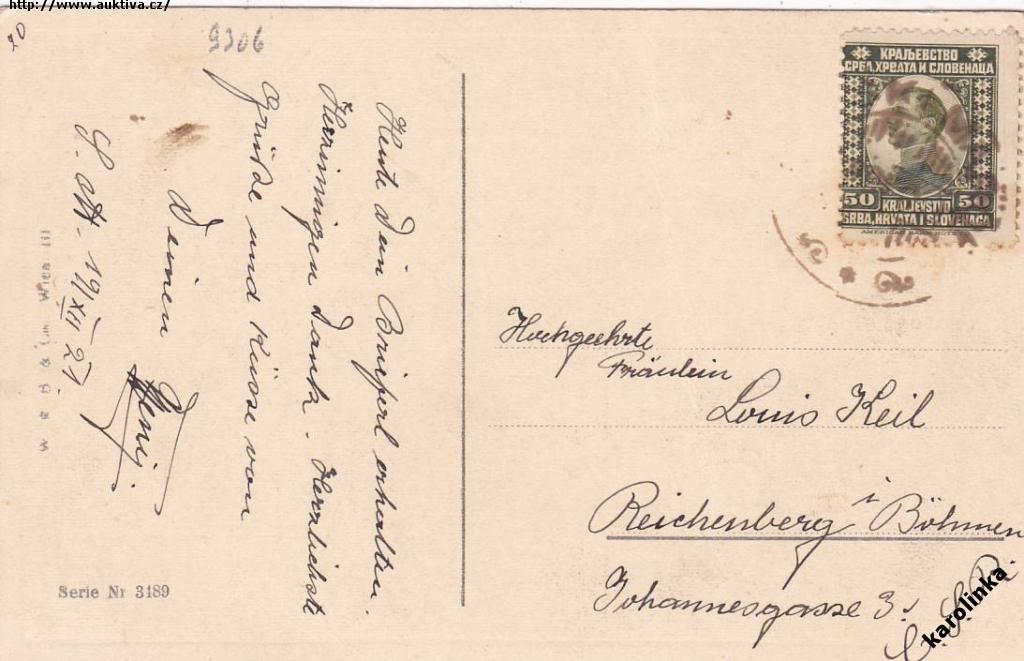 http://www.auktiva.cz/
9306
Heute Dein Brieferl erhalten.
Herzinnigen Dank. Herzlichste
Grüße und Küsse von
Deinen
19/XII 27
КРАЉЕВСТВО
СРБА, ХРВАТА И СЛОВЕНАЦА
50 KRALJEVSTVO 50
SRBA, HRVATA I SLOVENACA
Hochgeehrte
Fräulein
Louis Keil
Reichenberg i Böhmen
Johannesgasse 3.
Serie Nr 3189
karolinka